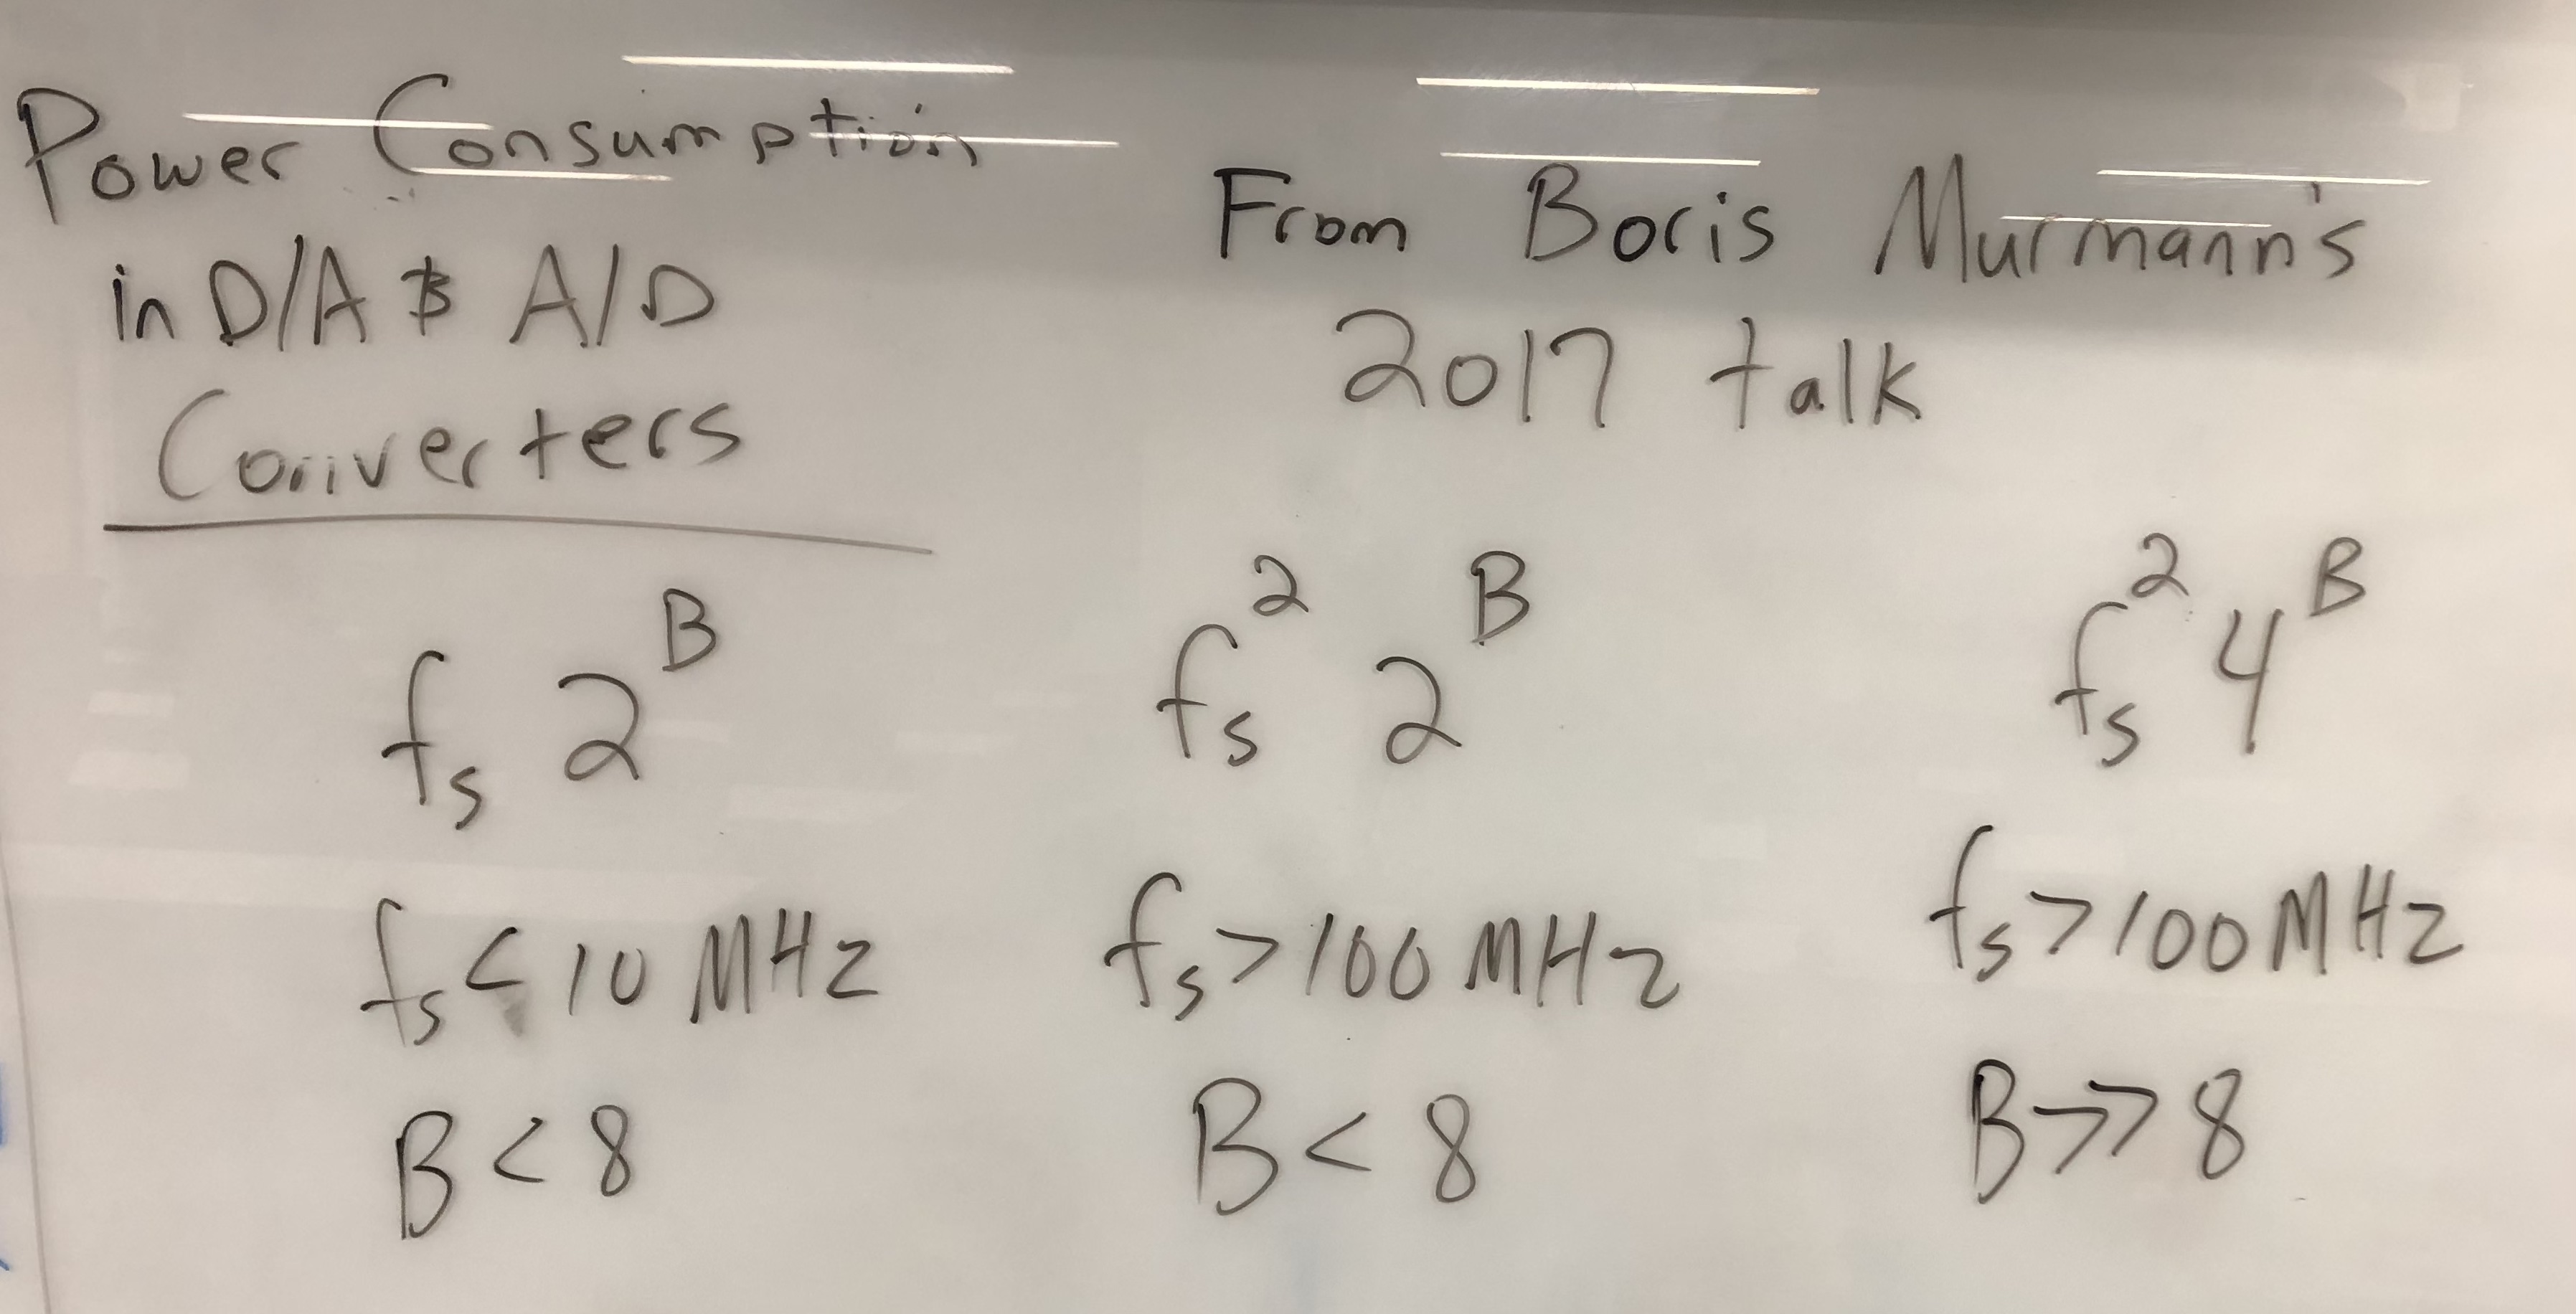 Power Consumption
in D/A & A/D
Converters
From Boris Murmann's
2017 talk
fₛ 2ᴮ
fₛ < 10 MHz
B < 8
fₛ² 2ᴮ
fₛ > 100 MHz
B < 8
fₛ² 4ᴮ
fₛ > 100 MHz
B >> 8